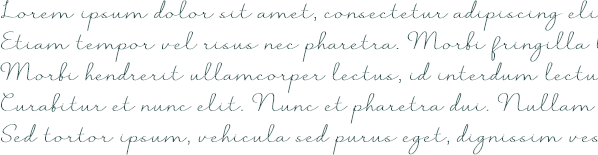 Lorem ipsum dolor sit amet, consectetur adipiscing eli
Etiam tempor vel risus nec pharetra. Morbi fringilla
Morbi hendrerit ullamcorper lectus, id interdum lectu
Curabitur et nunc elit. Nunc et pharetra dui. Nullam
Sed tortor ipsum, vehicula sed purus eget, dignissim ves